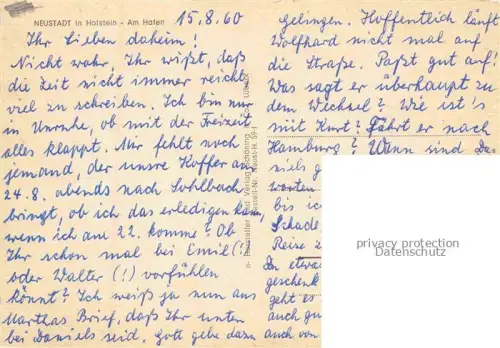 NEUSTADT in Holstein - Am Hafen
15.8.60
Ihr Lieben daheim!
Nicht wahr, Ihr wißt, daß
die Zeit nicht immer reicht
viel zu schreiben. Ich bin nur
in Unruhe, ob mit der Freizeit
alles klappt. Nur fehlt noch
jemand, der unsre Koffer am
24.8. abends nach Sohlbach
bringt, ob ich das erledigen kann,
wenn ich am 22. komme? Ob
Ihr schon mal bei Emil (!)
oder Walter (!) vorfühlen
könnt? Ich weiß ja nun aus
Marthas Brief, daß Ihr unter
bei Daniels seid. Gott gebe dazu
gelingen. Hoffentlich läuft
Wolfhard nicht mal auf
die Straße. Paßt gut auf!
Was sagt er überhaupt zu
dem Wechsel? Wie ist's
mit Kurt? Fährt er nach
Hamburg? Wann sind Da-
niels g
worten
bis ic
Schade
Reise z
In etwa
geschenk
geht es
auch gu
auch von
Hersteller und Verlag Schöning
Bestell-Nr. Neust.H. 59
privacy protection
Datenschutz